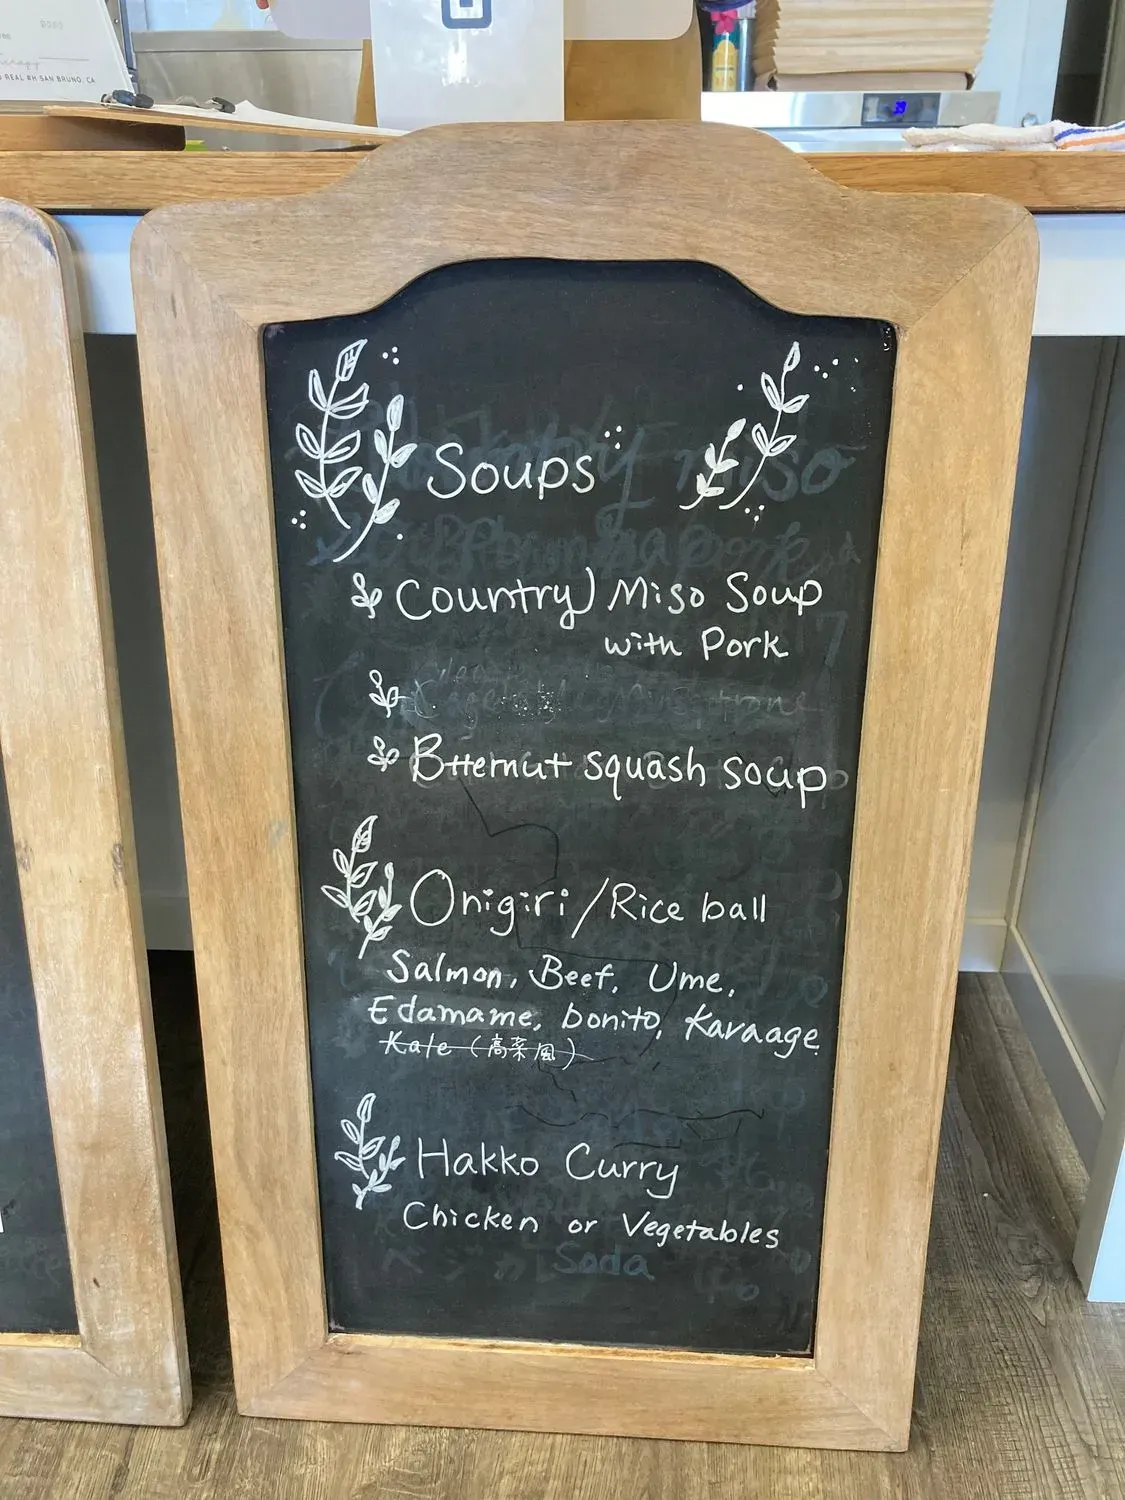 REAL #H SAN BRUNO, CA
39
Soups
Country) Miso Soup
with Pork
Btternut squash soup
Onigiri / Rice ball
Salmon, Beef, Ume,
Edamame, bonito, Karaage
Kale (高菜風)
Hakko Curry
Chicken or Vegetables
Soda